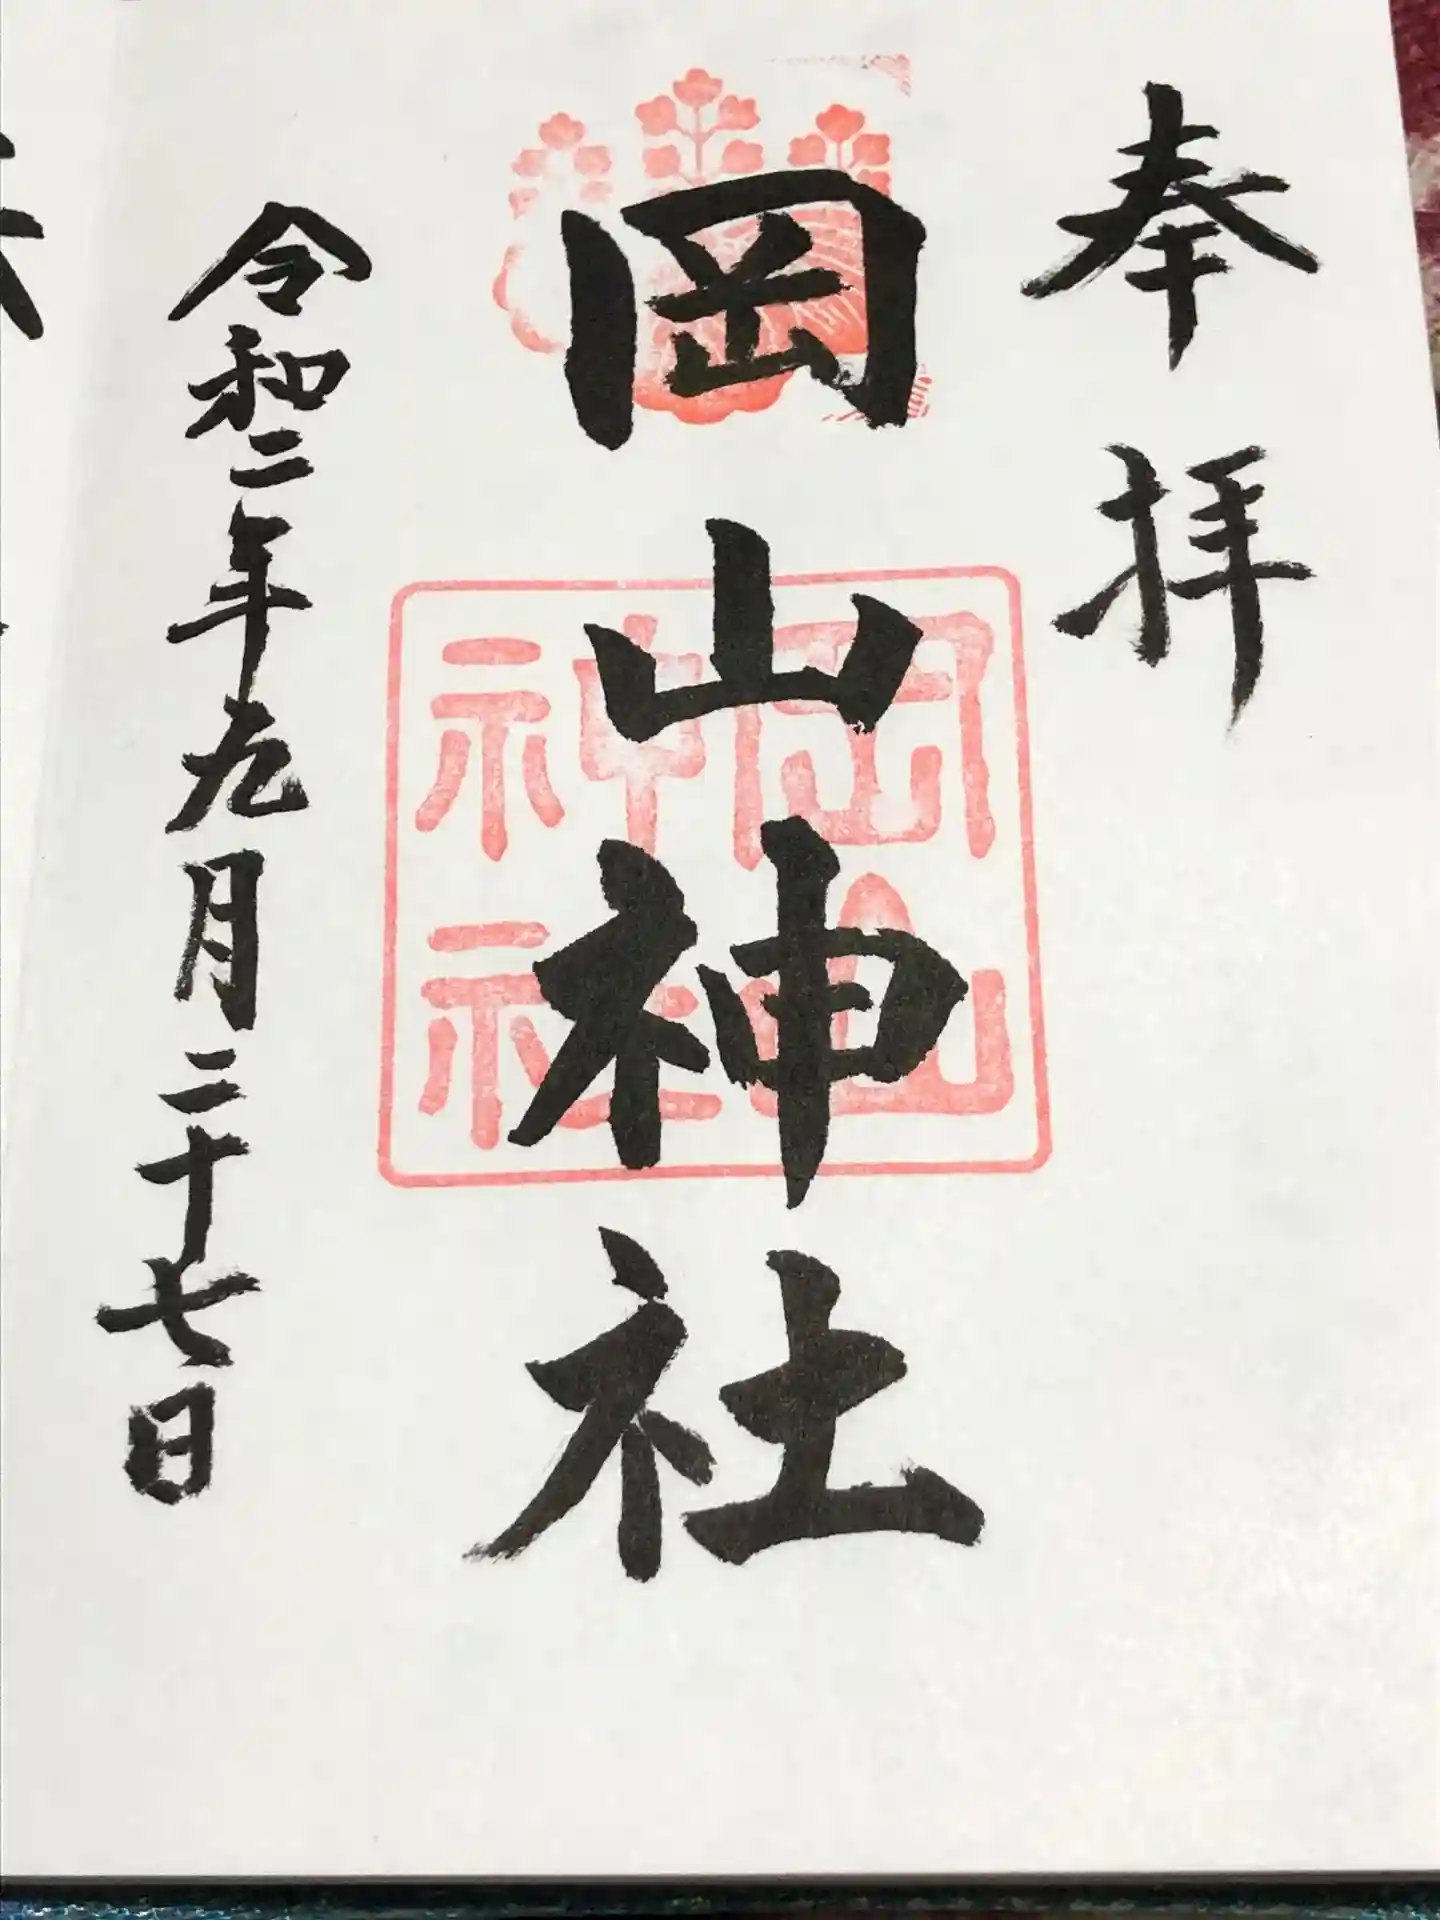 奉拝
岡山神社
岡山
神社
令和二年九月二十七日